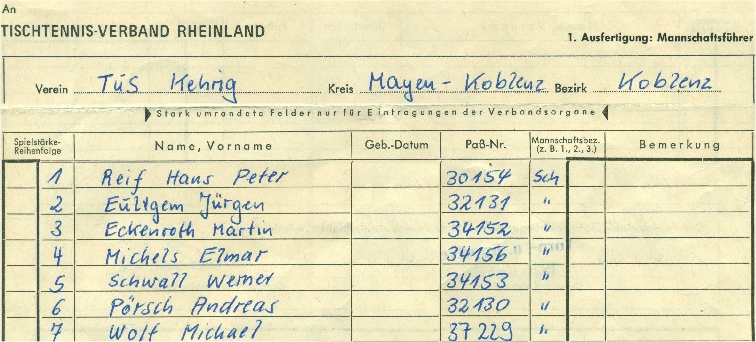 An
TISCHTENNIS-VERBAND RHEINLAND
1. Ausfertigung: Mannschaftsführer
Verein TuS Kehrig Kreis Mayen-Koblenz Bezirk Koblenz
Stark umrandete Felder nur für Eintragungen der Verbandsorgane
Spielstärke-Reihenfolge Name, Vorname Geb.-Datum Paß-Nr. Mannschaftsbez. (z. B. 1., 2., 3.) Bemerkung
1 Reif Hans Peter 30154 Sch
2 Eultgem Jürgen 32131 "
3 Eckenroth Martin 34152 "
4 Michels Elmar 34156 "
5 Schwall Werner 34153 "
6 Pörsch Andreas 32130 "
7 Wolf Michael 37229 "